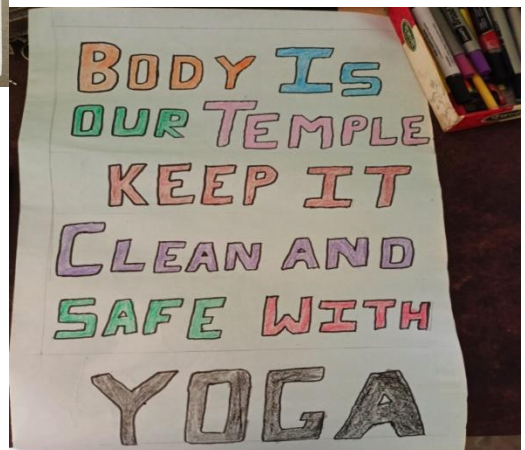 BODY IS
OUR TEMPLE
KEEP IT
CLEAN AND
SAFE WITH
YOGA